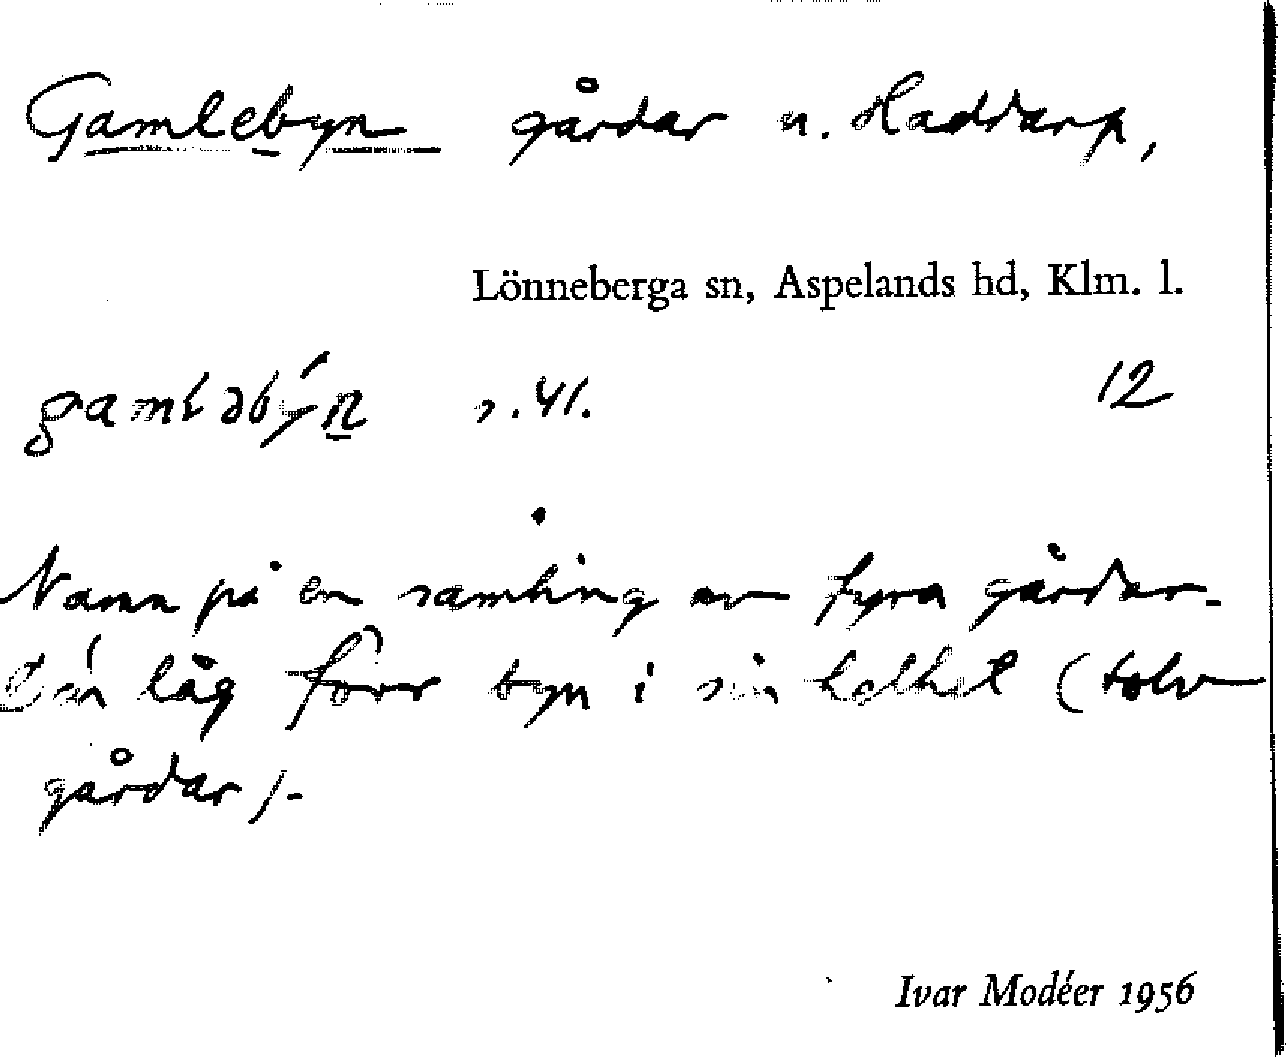 Gamlebyn gårdar u. Haddarp,
Lönneberga sn, Aspelands hd, Klm. l.
gamləbýn s. 41. 12
Namn på en samling av fyra gårdar.
låg förr byn i sin helhet (tolv
gårdar).
Ivar Modéer 1956